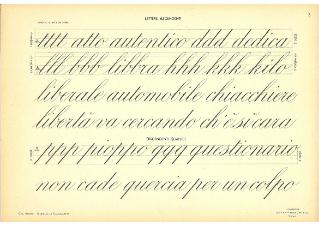 LETTERE ASCENDENTI
tttt atto autentico ddd dedica
lll bbb libbra hhh kkk kilo
liberale automobile chiacchiere
libertà va cercando ch'è sì cara
DISCENDENTI SEMPLICI
ppp pioppo qqq questionario
non cade quercia per un colpo